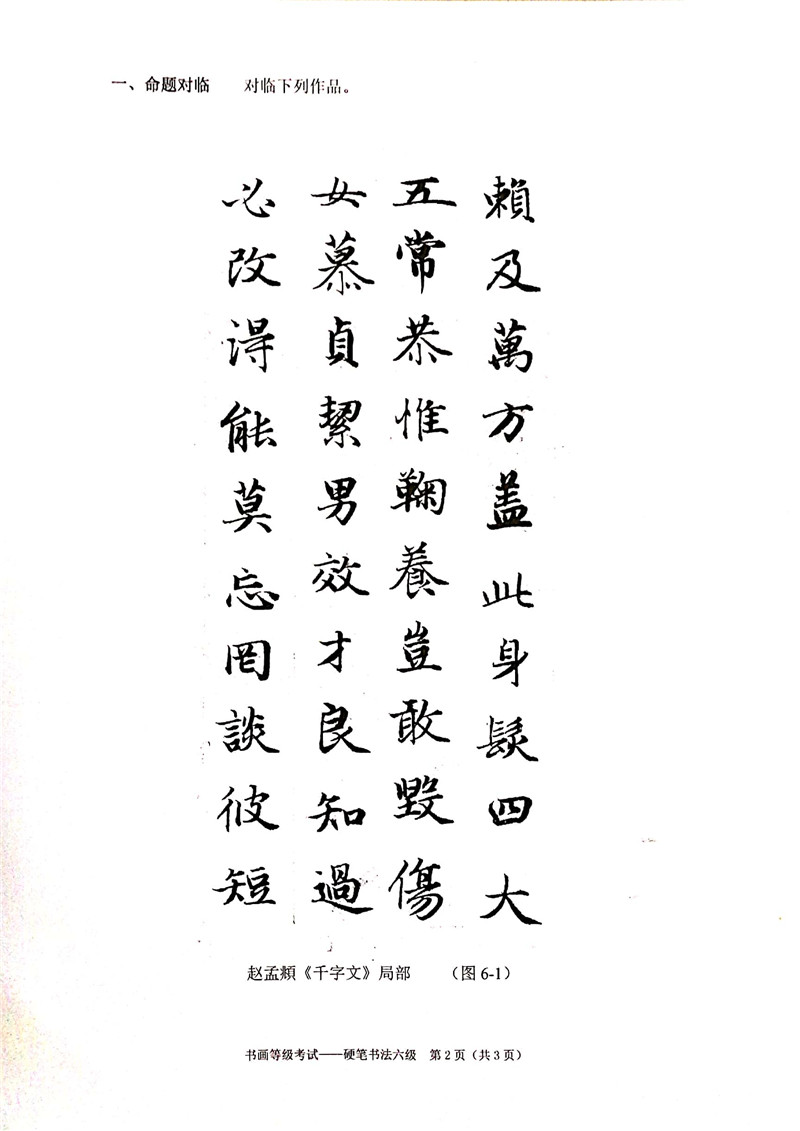 一、命题对临　　对临下列作品。
賴及萬方蓋此身髮四大
五常恭惟鞠養豈敢毀傷
女慕貞絜男效才良知過
必改得能莫忘罔談彼短
赵孟頫《千字文》局部　　（图 6-1）
书画等级考试——硬笔书法六级　第 2 页（共 3 页）